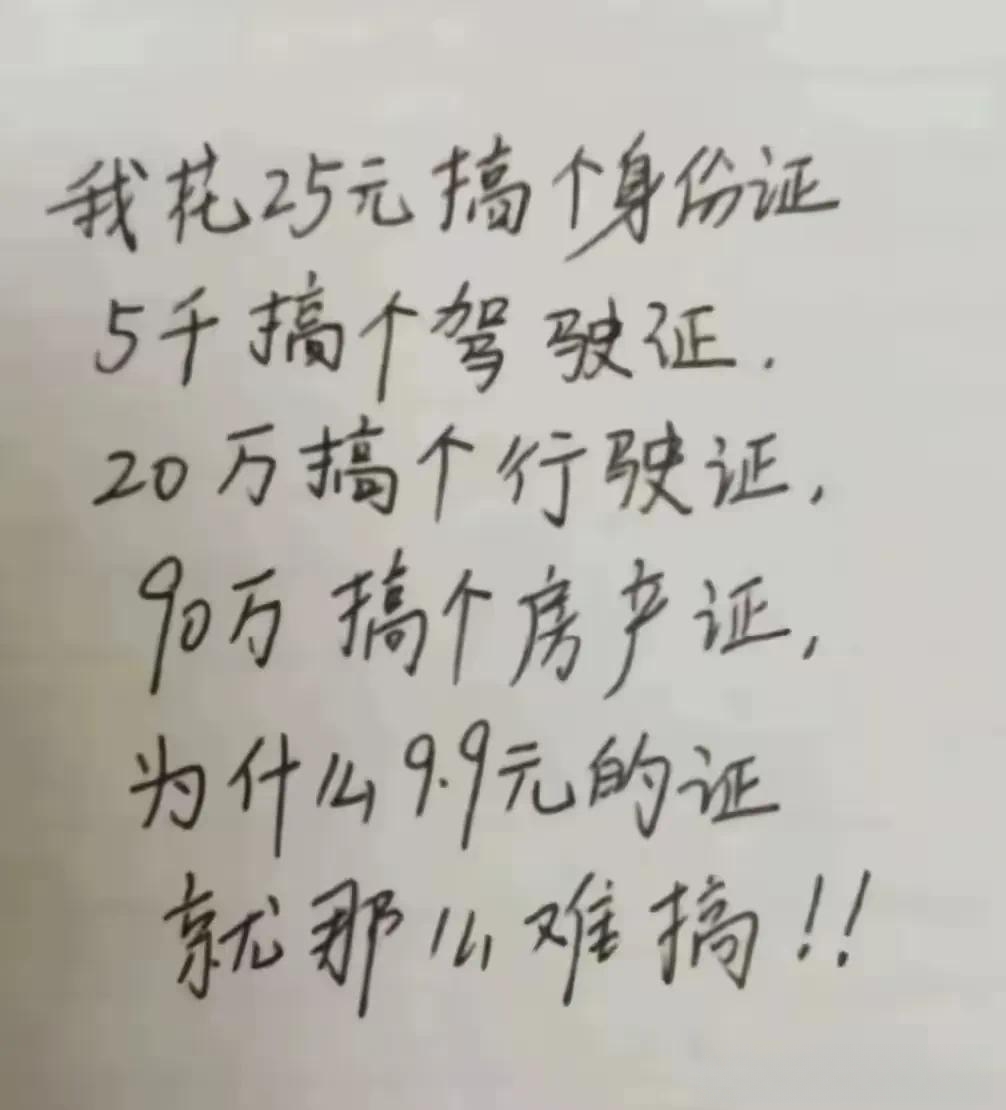 我花25元搞个身份证
5千搞个驾驶证.
20万搞个行驶证,
90万搞个房产证,
为什么9.9元的证
就那么难搞!!